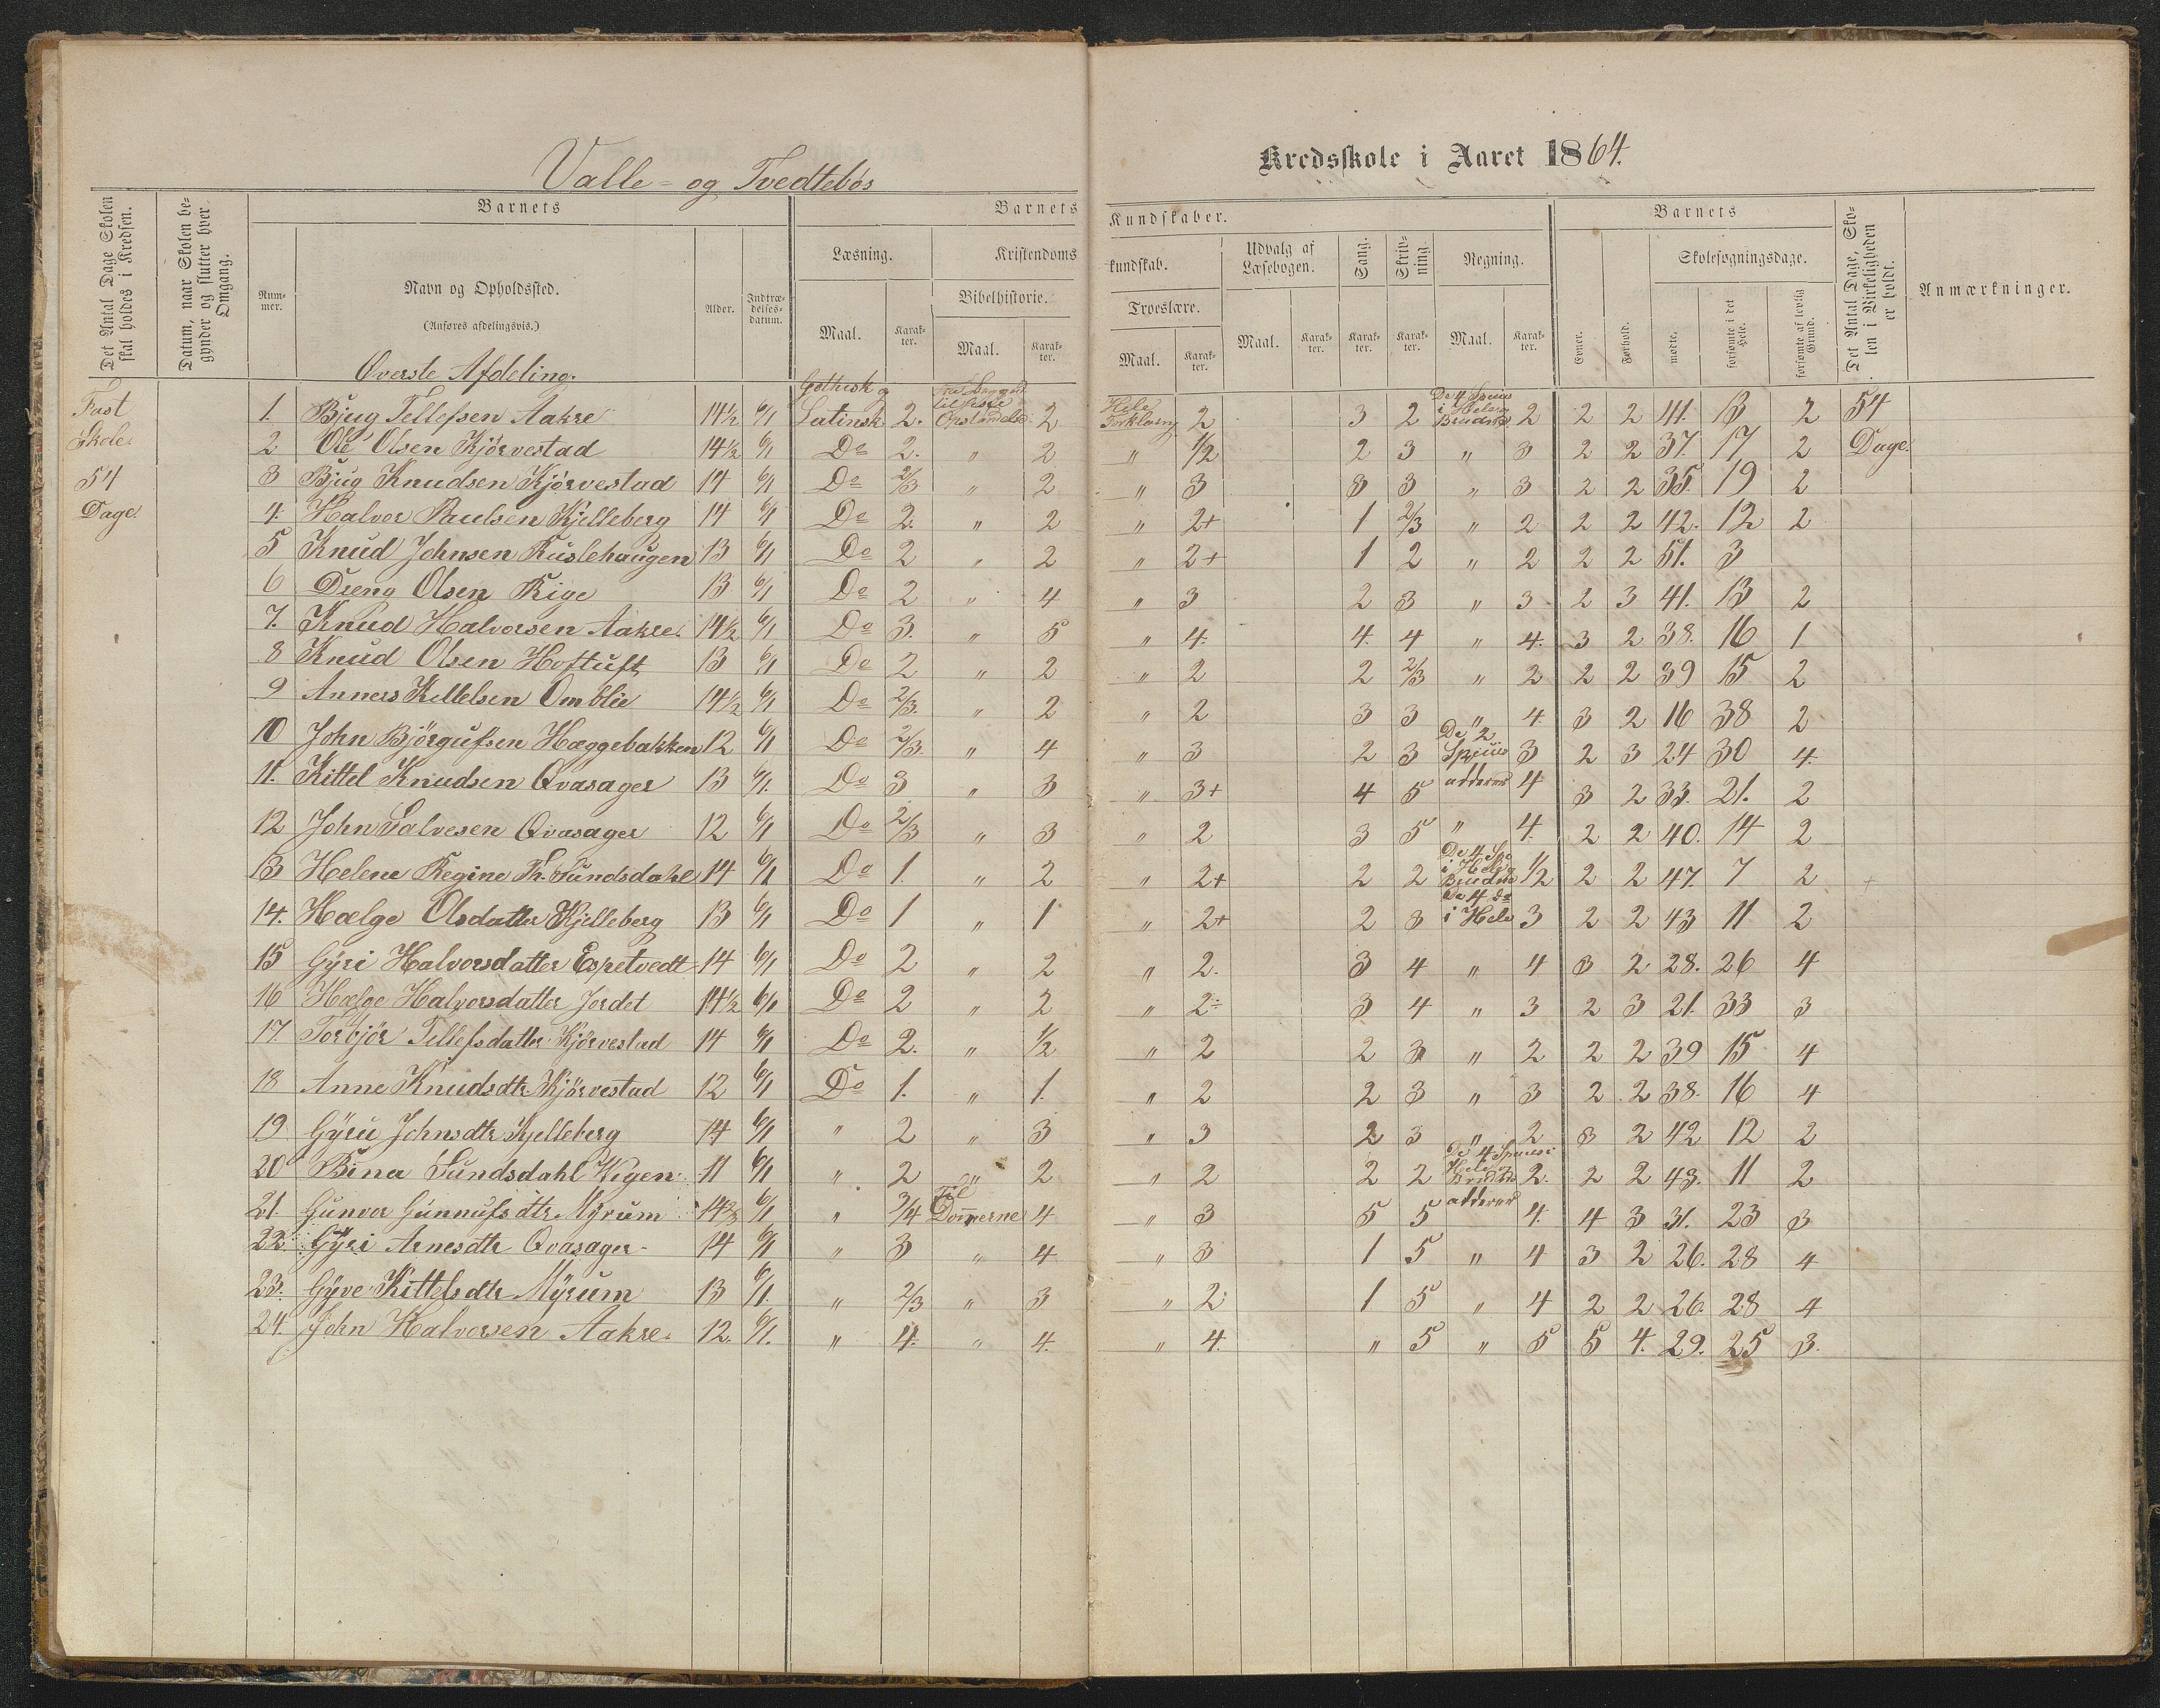 Valle- og Tvedtebøs Kredsskole i Aaret 1864.
Det Antal Dage Skolen skal holdes i Kredsen.
Datum, naar Skolen begynder og slutter hver Omgang.
Barnets
Barnets Kundskaber.
Barnets
Det Antal Dage, Skolen i Virkeligheden er holdt.
Anmærkninger.
Nummer.
Navn og Opholdssted.
(Anføres afdelingsvis.)
Alder.
Indtrædelsesdatum.
Læsning.
Kristendomskundskab.
Udvalg af Læsebogen.
Sang.
Skrivning.
Regning.
Evner.
Forhold.
Skolesøgningsdage.
Bibelhistorie.
Troeslære.
Maal. Karakter. Maal. Karakter. Maal. Karakter. Maal. Karakter. Karakter. Karakter. Maal. Karakter.
mødte. forsømte i det Hele. forsømte af lovlig Grund.
Overste Afdeling.
Fast Skole 54 Dage.
1. Bjug Tellefsen Aakre 14½ 6/1 Gothisk og Latinsk 2. til 2 Hele Forklaring 2 3 2 De 4 i Hele og Brudne 2 2 2 41. 13 2 54 Dage.
2 Ole Olsen Kjörvestad 14½ 6/1 Do 2. " 2 " ½ 2 3 " 3 2 2 37. 17 2
3 Bjug Knudsen Kjörvestad 14 6/1 Do 2/3 " 2 " 3 3 3 " 3 2 2 35. 19 2
4. Halvor Paulsen Kjelleberg 14 6/1 Do 2. " 2 " 2+ 1 2/3 " 2 2 2 42. 12 2
5 Knud Johnsen Ruslehaugen 13 6/1 Do 2 " 2 " 2+ 1 2 " 2 2 2 51. 3
6 Dreng Olsen Rige 13 6/1 Do 2 " 4 " 3 2 3 " 3 2 3 41. 13 2
7. Knud Halvorsen Aakre. 14½ 6/1 Do 3. " 5 " 4. 4. 4 " 4. 3 2 38. 16 1
8 Knud Olsen Hoftuft 13 6/1 Do 2 " 2 " 2 2 2/3 " 2 2 2 39 15 2
9 Anners Killelsen Omblie 14½ 6/1 Do 2/3. " 2 " 2 3 3 " 4 3 2 16 38 2
10 John Björgufsen Hæggebakken 12 6/1 Do 2/3. " 4 " 3 2 3 De 2 Spesies 3 2 3 24 30 4.
11. Kittel Knudsen Qvasager 13 6/1. Do 3 " 3 " 3+ 4 5 adderer 4 3 2 33. 21. 2
12 John Salvesen Qvasager 12 6/1 Do 2/3 " 3 " 2 3 5 " 4. 2 2 40. 14 2
13 Helene Regine Th. Sundsdahl 14 6/1 Do 1. " 2 " 2+ 2 2 De 4 i Hele og Brudne 1/2 2 2 47. 7 2
14. Hælge Olsdatter Kjelleberg 13 6/1 Do 1 " 1 " 2+ 2 3 De 4 do i Hele 3 2 2 43 11 2
15 Gÿri Halvorsdatter Espetvedt 14 6/1 Do 2 " 2 " 2. 3 4 " 4 3 2 28. 26 4
16 Hælge Halvorsdatter Jordet 14½ 6/1 Do 2 " 2 " 2÷ 3 4 " 3 2 3 21. 33 3
17. Torbjör Tellefsdatter Kjörvestad 14 6/1 Do 2. " ½ " 2 2 3 " 2 2 2 39 15 4
18 Anne Knudsdtr Kjörvestad 12 6/1 Do 1. " 1. " 2 2 3 " 3 2 2 38. 16 4
19 Gÿru Johnsdtr Kjelleberg 14 6/1 " 2 " 3 " 3 2 3 " 2 3 2 42 12 2
20 Bina Sundsdahl Wigen 11 6/1 " 2 " 2 " 2 2 2 De 4 Spesies i Hele og Brudne 2. 2 2 43. 11 2
21. Gunvor Gunnufsdtr Mÿrum 6/1 " 3/4 Til Dommerne 4 " 3 5 5 adderer 4. 4 3 31. 23 3
22 Gÿri Arnesdtr Qvasager 14 6/1 " 3 " 4 " 3 1 5 " 4 3 2 26. 28 4
23. Gÿve Kittelsdtr Mÿrum 13 6/1. " 2/3 " 3 " 2 1 5 " 4 2 2 26. 28 4
24. John Halvorsen Aakre. 12. 6/1. " 4. " 4. " 4. " 5 " 5 5 4. 29. 25 3.